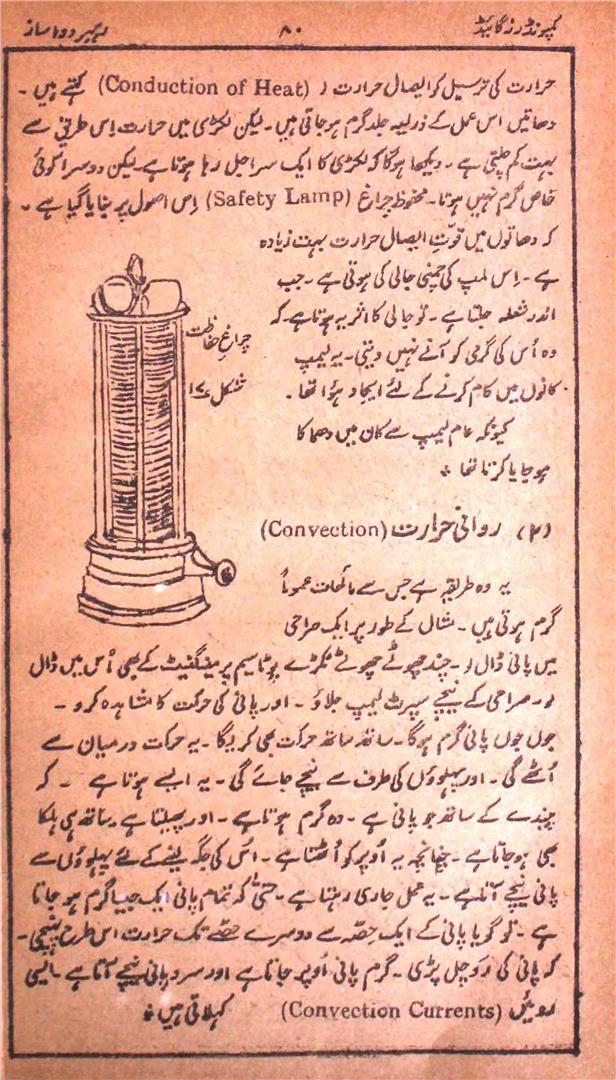 کمپونڈرز گائیڈ ۸۰ رہبر دوا ساز
حرارت کی ترسیل کو ایصال حرارت ( Conduction of Heat) کہتے ہیں ۔
دھاتیں اس عمل کے ذریعہ جلد گرم ہو جاتی ہیں ۔ لیکن لکڑی میں حرارت اِس طریق سے
بہت کم چلتی ہے ۔ دیکھا ہوگا کہ لکڑی کا ایک سرا جل رہا ہوتا ہے لیکن دوسرا کوئی
خاص گرم نہیں ہوتا ۔ محفوظ چراغ (Safety Lamp) اِس اصول پر بنایا گیا ہے ۔
کہ دھاتوں میں قوّتِ ایصال حرارت بہت زیادہ
ہے ۔ اِس لمپ کی چمنی جالی کی ہوتی ہے ۔ جب
اندر شعلہ جلتا ہے ۔ تو جالی کا اثر یہ ہوتا ہے ۔ کہ
وہ اُس کی گرمی کو آنے نہیں دیتی ۔ یہ لیمپ
کانوں میں کام کرنے کے لئے ایجاد ہؤا تھا ۔
کیونکہ عام لیمپ سے کان میں دھماکا
ہو جایا کرتا تھا *
چراغِ حفاظت
شکل ۱۷
(۲) روانی حرارت (Convection)
یہ وہ طریقہ ہے جس سے مائعات عموماً
گرم ہوتی ہیں ۔ مثال کے طور پر ایک صراحی
میں پانی ڈال لو ۔ چند چھوٹے چھوٹے ٹکڑے پوٹاسیم پرمینگنیٹ کے بھی اُس میں ڈال
لو ۔ صراحی کے نیچے سپرٹ لیمپ جلاؤ ۔ اور پانی کی حرکت کا مشاہدہ کرو ۔
جوں جوں پانی گرم ہوگا ۔ ساتھ ساتھ حرکت بھی کریگا ۔ یہ حرکت درمیان سے
اُٹھے گی ۔ اور پہلوؤں کی طرف سے نیچے جائے گی ۔ یہ ایسے ہوتا ہے ۔ کہ
پیندے کے ساتھ جو پانی ہے ۔ وہ گرم ہوتا ہے ۔ اور پھیلتا ہے ساتھ ہی ہلکا
بھی ہو جاتا ہے ۔ چنانچہ یہ اُوپر کو اُٹھتا ہے ۔ اس کی جگہ لینے کے لئے پہلوؤں سے
پانی نیچے آتا ہے ۔ یہ عمل جاری رہتا ہے ۔ حتیٰ کہ تمام پانی ایک جیسا گرم ہو جاتا
ہے ۔ تو گویا پانی کے ایک حِصّہ سے دوسرے حصّے تک حرارت اس طرح پہنچی ۔
کہ پانی کی رَو چل پڑی ۔ گرم پانی اُوپر جاتا ہے اور سرد پانی نیچے آتا ہے ۔ ایسی
رویئں (Convection Currents) کہلاتی ہیں *